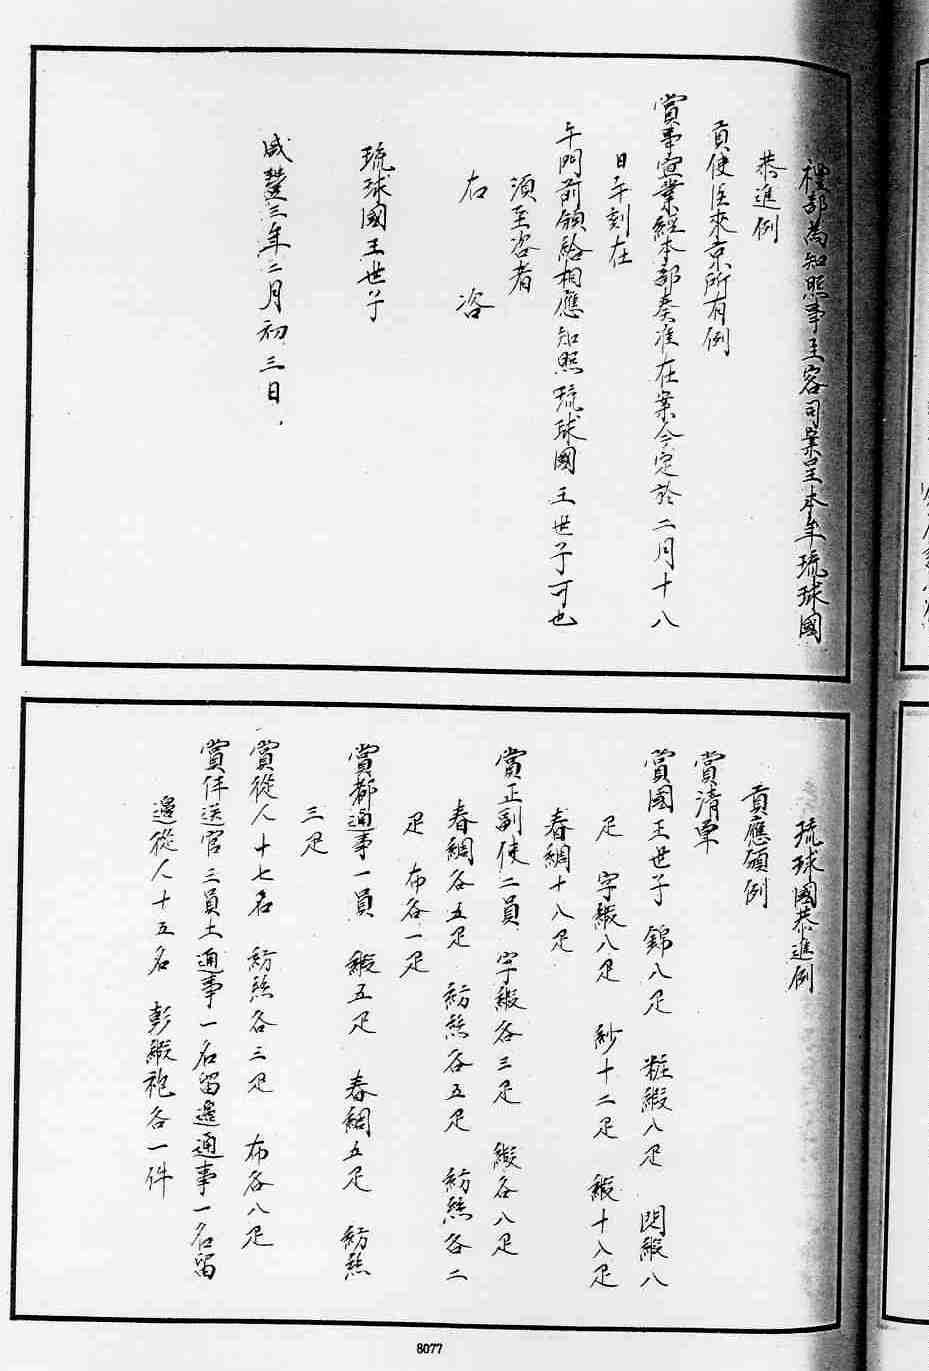 禮部為知照事主客司案呈本年琉球國
恭進例
貢使臣來京所有例
賞事宜業經本部奏准在案今定於二月十八
日午刻在
午門前頒給相應知照琉球國王世子可也
須至咨者
右咨
琉球國王世子
咸豐三年二月初三日
琉球國恭進例
貢應頒例
賞清單
賞國王世子 錦八疋 粧緞八疋 閃緞八
疋 字緞八疋 紗十二疋 緞十八疋
春綢十八疋
賞正副使二員 字緞各三疋 緞各八疋
春綢各五疋 紡絲各五疋 紡絲各二
疋 布各一疋
賞都通事一員 緞五疋 春綢五疋 紡絲
三疋
賞從人十七名 紡絲各三疋 布各八疋
賞伴送官三員土通事一名留邊通事一名留
邊從人十五名 彭緞袍各一件
8077